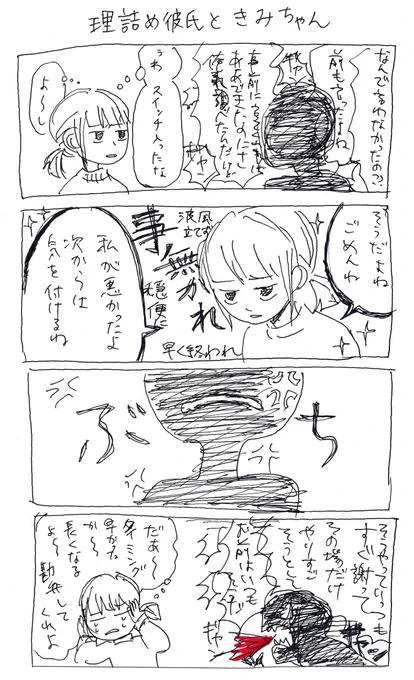 理詰め彼氏ときみちゃん
なんで言わなかったの??
前も言ったよね
事前に言えば
うわ
スイッチ入ったな
よーし
そうだよね
ごめんね
波風
立てず
事無かれ
穏便に
早く終われ
私が悪かったよ
次からは
気を付けるね
ぶち
そうやっていっつも
すぐ謝って
その場だけ
やりすご
そうとして
お前はいつも
だあ〜
タイミング
早かった
から〜
長くなる
よ〜
勘弁して
くれよ